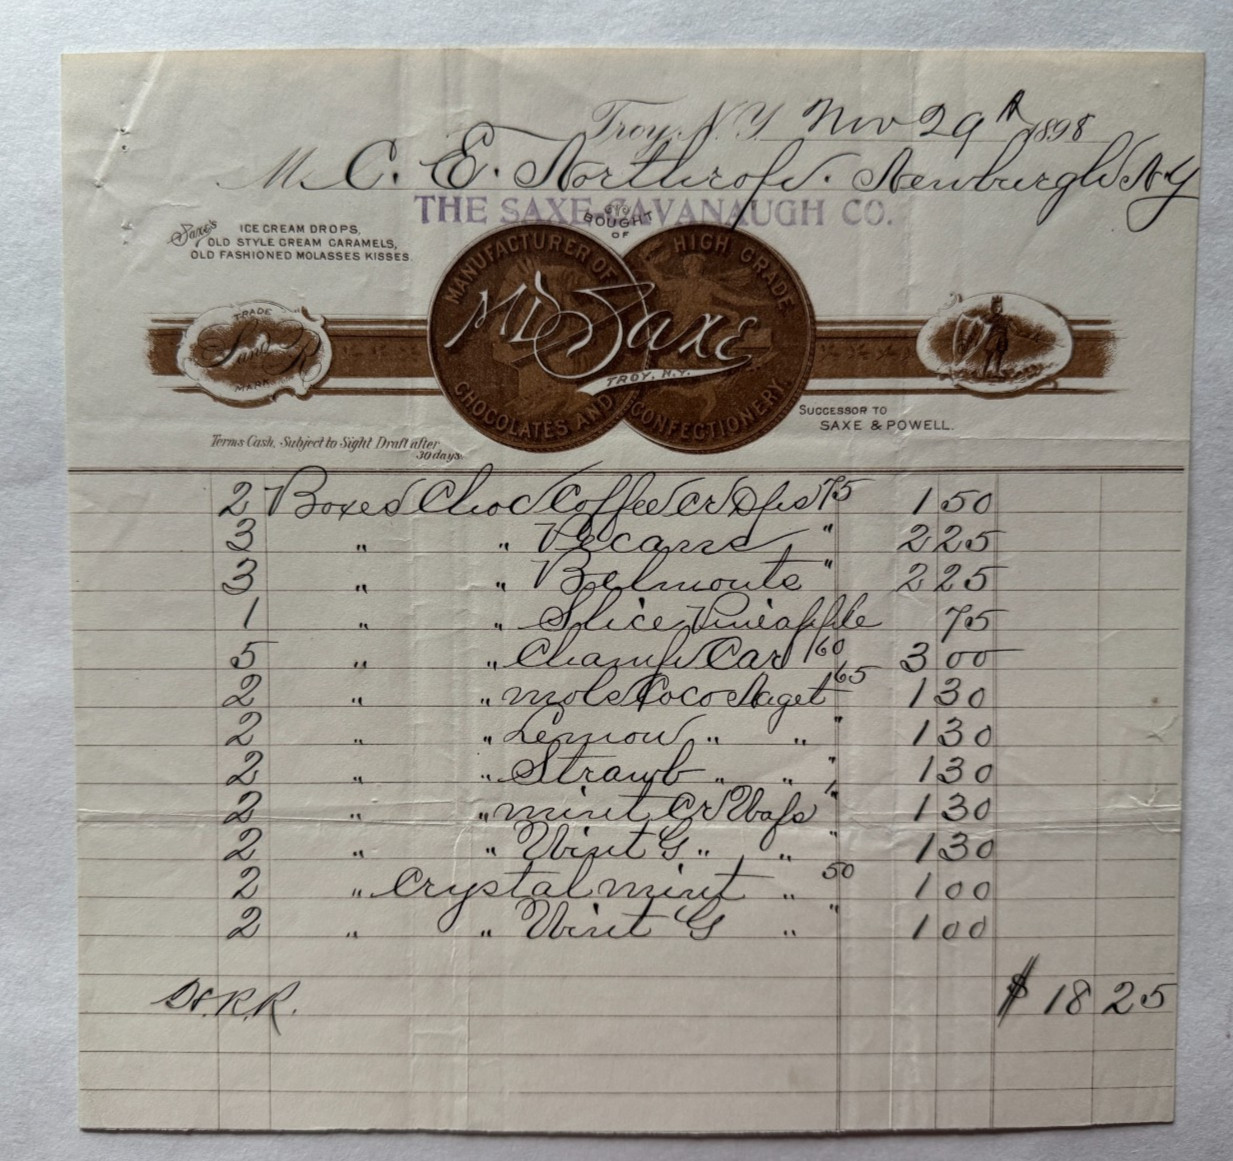 Troy, N.Y. Nov 29th 1898
M C. E. Northrop. Newburgh NY
THE SAXE CAVANAUGH CO.
BOUGHT
OF
Saxe's ICE CREAM DROPS,
OLD STYLE CREAM CARAMELS,
OLD FASHIONED MOLASSES KISSES.
MANUFACTURER OF HIGH GRADE
M D Saxe
TROY, N.Y.
CHOCOLATES AND CONFECTIONERY.
TRADE
S and R
MARK
SUCCESSOR TO
SAXE & POWELL.
Terms Cash, Subject to Sight Draft after
30 days
2 Boxes Choc Coffee Cr Dps 75 1 50
3 " " Pecans " 2 25
3 " " Belmonts " 2 25
1 " " Slice Pineapple 75
5 " " Champ Car 60 3 00
2 " " Mols Coco Naget 65 1 30
2 " " Lemon " " " 1 30
2 " " Strawb " " " 1 30
2 " " mint Cr Wafs " 1 30
2 " " Wint G " " " 1 30
2 " Crystal mint " 50 1 00
2 " " Wint G " " 1 00
R.R. $ 18 25